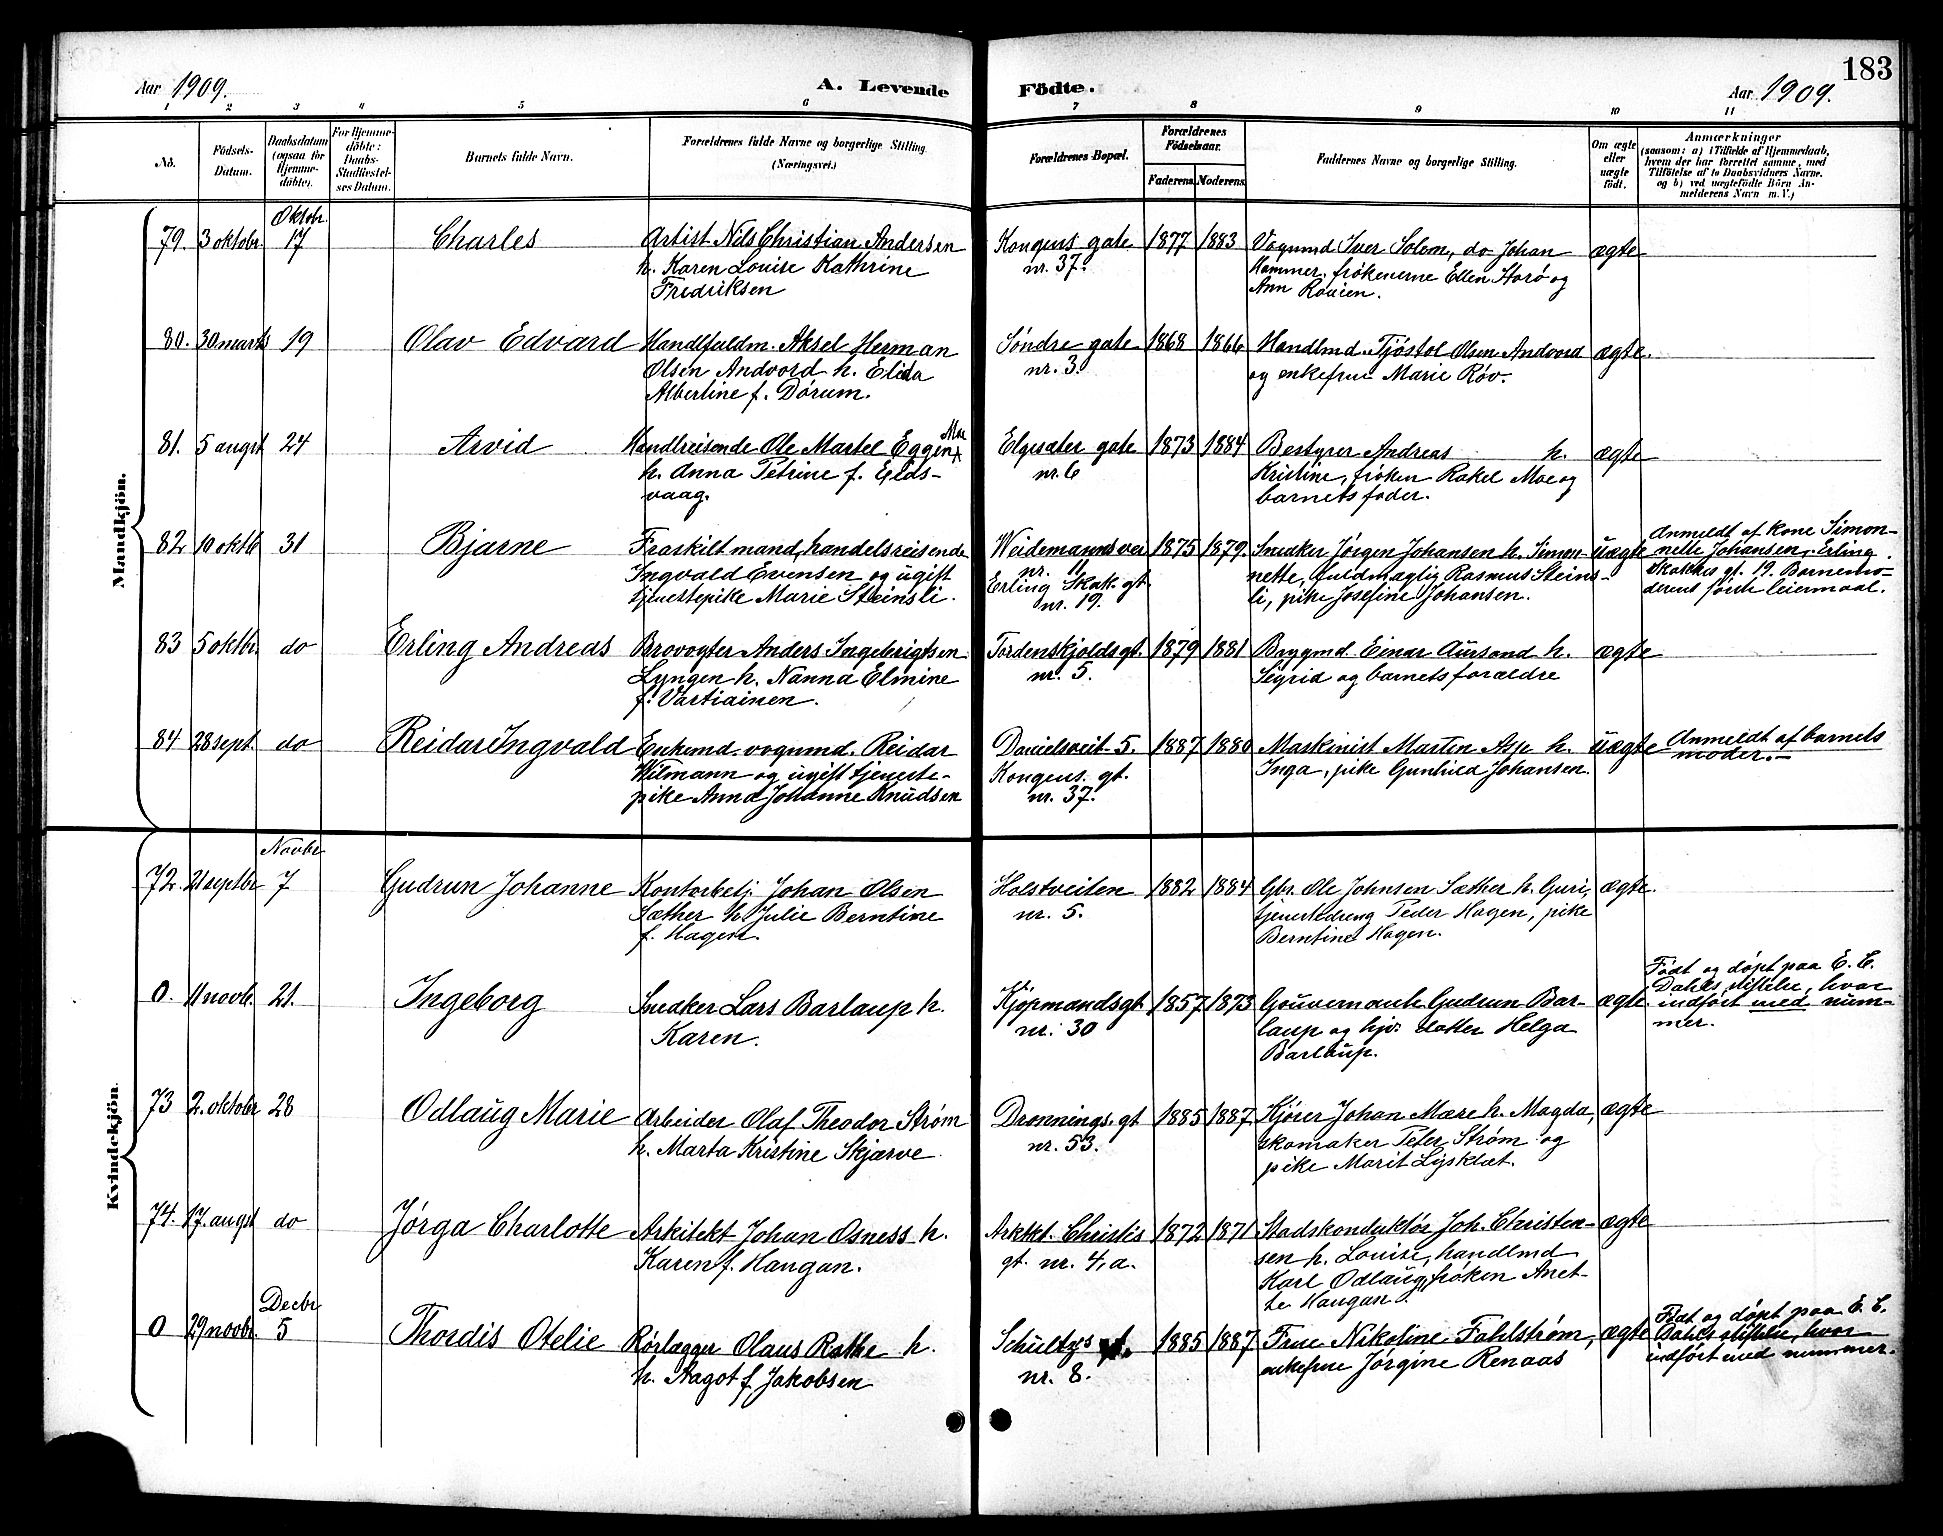 183
Aar 1909.
A. Levende Födte.
Aar 1909.
1 2 3 4 5 6 7 8 9 10 11
No.
Födsels-
Datum.
Daabsdatum
(ogsaa for
Hjemme-
döbte).
For Hjemme-
döbte:
Daabs-
Stadfæstel-
ses Datum.
Barnets fulde Navn.
Forældrenes fulde Navne og borgerlige Stilling
(Næringsvei.)
Forældrenes Bopæl.
Forældrenes
Födselsaar.
Faderens. Moderens.
Faddernes Navne og borgerlige Stilling.
Om ægte
eller
uægte
födt.
Anmærkninger
(saasom: a) i Tilfælde af Hjemmedaab,
hvem der har forrettet samme, med
Tilföielse af to Daabsvidners Navne.
og b) ved uægtefödte Börn An-
melderens Navn m. V.)
Mandkjön.
Oktobr.
79. 3 oktobr. 17 Charles
Artist Nils Christian Andersen
h. Karen Louise Kathrine
Fredriksen
Kongens gate
nr. 37.
1877 1883
Vognmd Iver Solem, do Johan
Hammer, frøkenerne Ellen Horø og
Ann
ægte
80. 30 marts 19 Olav Edvard
Handlfuldm. Aksel Herman
Olsen Andvord h. Elida
Albertine f. Dørum.
Søndre gate
nr. 3.
1868 1866
Handlmd Tjøstol Olsen Andvord
og enkefrue Marie Röv.
ægte.
81. 5 augst 24 Arvid
Handlreisende Ole Martel Eggen Moe
h. Anna Petrine f. Elds-
vaag.
Elgesæter gate
nr. 6
1873 1884
Bestyrer Andreas h.
Kristine, frøken Rakel Moe og
barnets fader.
ægte
82 10 oktb 31 Bjarne
Fraskilt mand, handelsreisende
Ingvald Evensen og ugift
tjenestepike Marie Steinsli.
Weidemannsvei
nr. 11
Erling Skak. gt.
nr. 19.
1875 1879.
Snekker Jörgen Johansen h. Simon-
nette, fuldmægtig Rasmus Steins-
li, pike Josefine Johansen.
uægte
Anmeldt af kone Simon-
nette Johansen, Erling
Skakkes gt. 19. Barnemo-
derens første leiermaal.
83 5 oktbr. do Erling Andreas
Brovogter Anders Ingebrigtsen
Lyngen h. Nanna Elmine
f. Vartiainen.
Tordenskjolds gt.
nr. 5.
1879 1881
Brygmd. Einar Aursand h.
Sigrid og barnets forældre
ægte
84 28 sept. do Reidar Ingvald
Enkemd. vognmd. Reidar
Wilmann og ugift tjeneste-
pike Anna Johanne Knudsen
Danielsveit 5.
Kongens gt.
nr. 37.
1887 1880
Maskinist Marten Asp h.
Inga, pike Gunhild Johansen.
uægte
Anmeldt af barnets
moder.
Kvindekjön.
Novbr
72. 21 septbr 7 Gudrun Johanne
Kontorbetj. Johan Olsen
Sæther h. Julie Berntine
f. Hagen.
Holstveiten
nr. 5.
1882 1884
Gbr. Ole Johnsen Sæther h. Guri,
tjenestedreng Peder Hagen, pike
Berntine Hagen.
ægte.
0. 11 novb. 21. Ingeborg
Snekker Lars Barlaup h.
Karen.
Kjöpmandsgt
nr. 30
1857 1873
Gouvernante Gudrun Bar-
laup og hjv. datter Helga
Barlaup.
ægte.
Födt og döpt paa E. C.
Dahls stiftelse, hvor
indfört med num-
mer.
73 2. oktobr 28 Odlaug Marie
Arbeider Olaf Theodor Strøm
h. Marta Kristine Skjærve
Dronnings. gt
nr. 53.
1885 1887
Kjører Johan Mære h. Magda,
skomaker Peter Strøm og
pike Marit Lysklæt.
ægte
74. 17. augst do Jørga Charlotte
Arkitekt Johan Osness h.
Karen f. Haugan.
Arktkt. Christis
gt. nr. 4, a.
1872 1871
Stadskonduktør Joh. Christen-
sen h. Louise, handlmd
Karl Odlaug, frøken Anet-
te Haugan.
ægte
Decbr
0 29 novbr. 5 Thordis Otelie
Rørlægger Olaus Rathe h.
h. Aagot f. Jakobsen
Schultzs gt.
nr. 8.
1885 1887
Frue Nikoline Fahlstrøm,
enkefrue Jörgine Renaas
ægte
Födt og döpt paa E. C.
Dahls stiftelse, hvor
indfört med nummer.